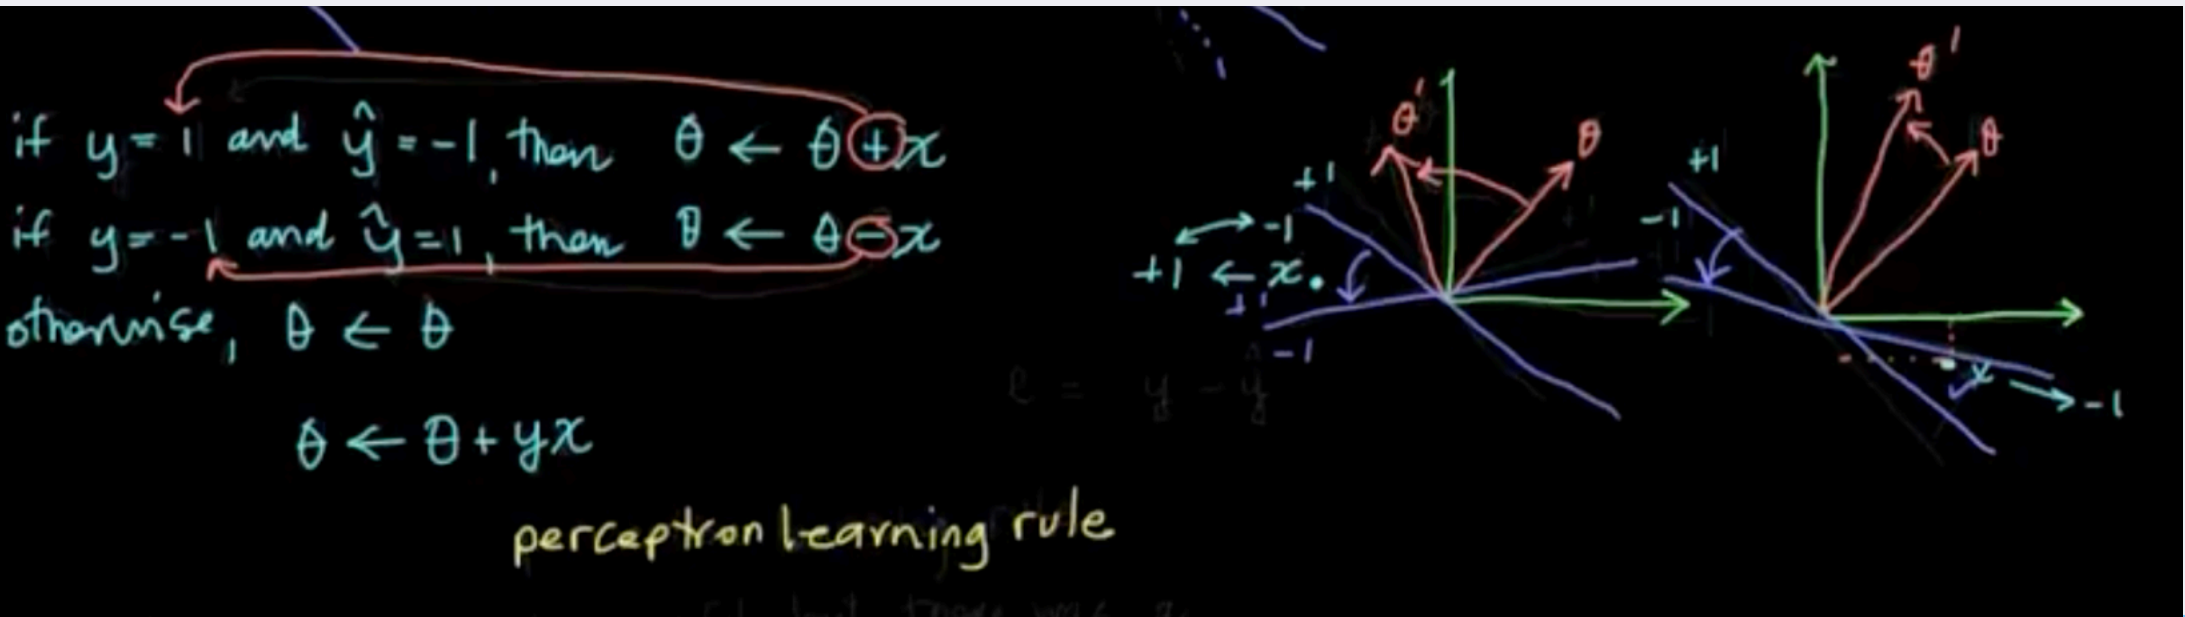 if y = 1 and ŷ = -1, then θ ← θ + x
if y = -1 and ŷ = 1, then θ ← θ - x
otherwise, θ ← θ
θ ← θ + yx
perceptron learning rule
e = y - ŷ
θ'
θ
+1
-1
+1 ← x
+1
-1
θ'
θ
+1
-1
x
-1